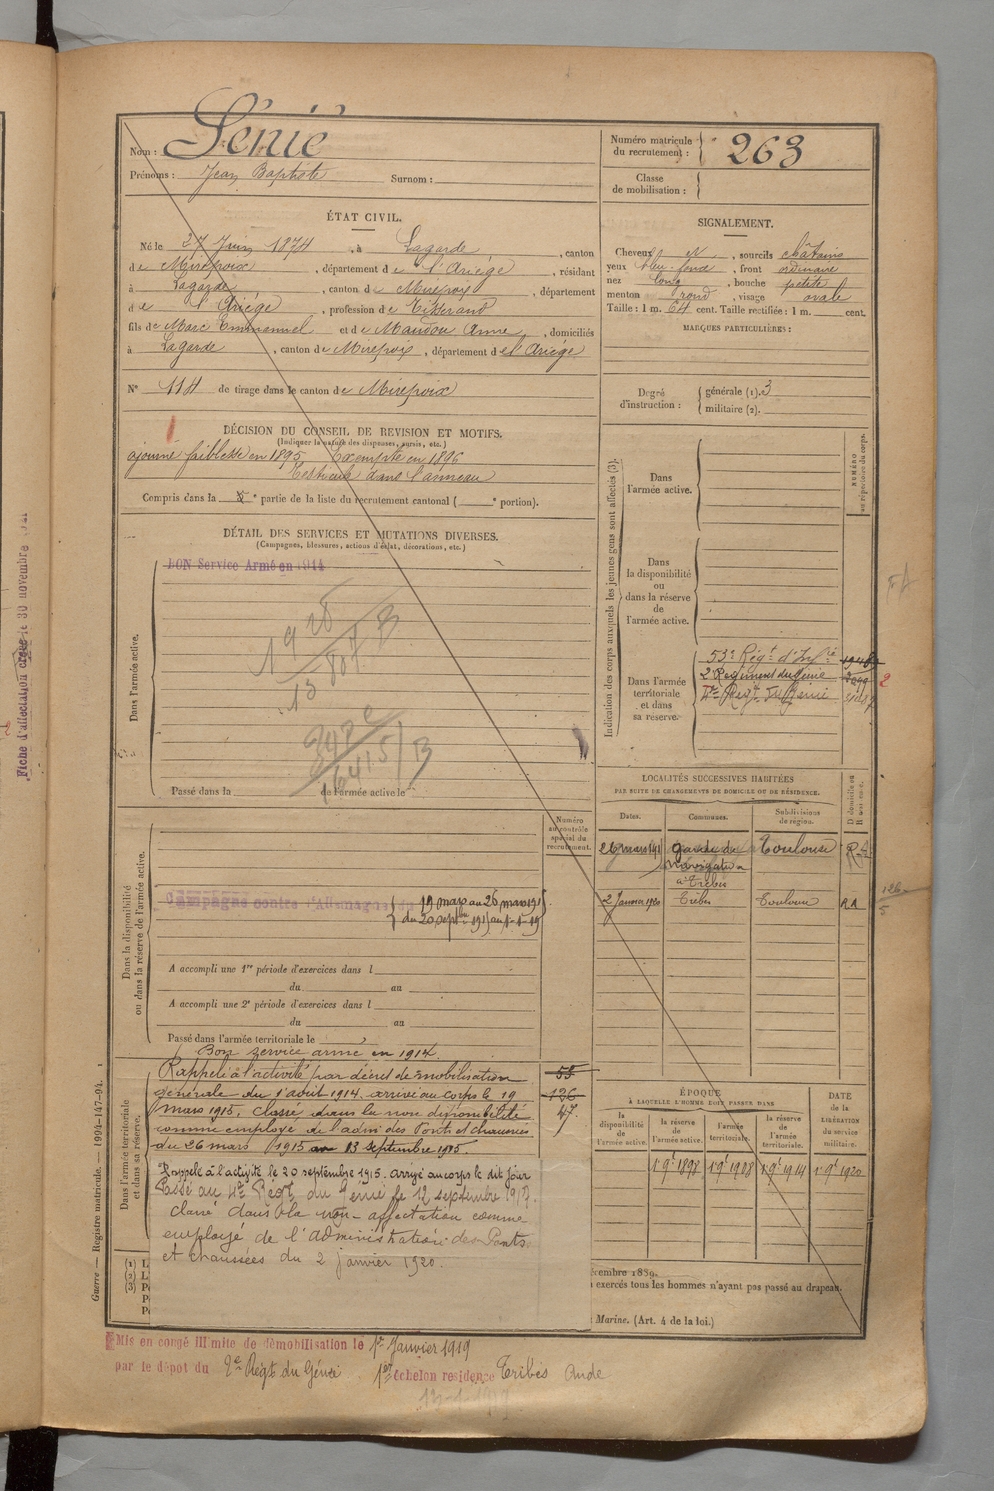 Nom : Sénié
Prénoms : Jean Baptiste Surnom :
Numéro matricule du recrutement : 263
Classe de mobilisation :
ÉTAT CIVIL.
Né le 27 Juin 1874, à Lagarde, canton
de Mirepoix, département de l'Ariège, résidant
à Lagarde, canton de Mirepoix, département
de l'Ariège, profession de Tisserand
fils de Marc Emmanuel et de Maudou Anne, domiciliés
à Lagarde, canton de Mirepoix, département de l'Ariège
N° 114 de tirage dans le canton de Mirepoix
SIGNALEMENT.
Cheveux et, sourcils châtains
yeux bleu foncé, front ordinaire
nez long, bouche petite
menton rond, visage ovale
Taille : 1 m. 64 cent. Taille rectifiée : 1 m. cent.
MARQUES PARTICULIÈRES :
Degré d'instruction : générale (1). 3
militaire (2).
DÉCISION DU CONSEIL DE REVISION ET MOTIFS.
(Indiquer la nature des dispenses, sursis, etc.)
ajourné faiblesse en 1895 Exempté en 1896
Testicule dans l'anneau
Compris dans la e partie de la liste du recrutement cantonal ( e portion).
DÉTAIL DES SERVICES ET MUTATIONS DIVERSES.
(Campagnes, blessures, actions d'éclat, décorations, etc.)
BON Service Armé en 1914
Dans l'armée active.
Passé dans la de l'armée active le
Indication des corps auxquels les jeunes gens sont affectés (3).
NUMÉRO au répertoire du corps.
Dans l'armée active.
Dans la disponibilité ou dans la réserve de l'armée active.
Dans l'armée territoriale et dans sa réserve.
53e Régt d'Infie
2 Régiment du Génie
4e Régt du Génie
2
LOCALITÉS SUCCESSIVES HABITÉES
PAR SUITE DE CHANGEMENTS DE DOMICILE OU DE RÉSIDENCE.
Dates. Communes. Subdivisions de région. D domicile ou R résidence.
26 mars 1911 garde de navigation à Trèbes Toulouse
2 Janvier 1920 Trèbes Toulouse RA
Numéro au contrôle spécial du recrutement.
Dans la disponibilité ou dans la réserve de l'armée active.
Campagne contre l'Allemagne du 19 mars au 26 mars 1915
du 20 septbre 1915 au 1-1-19
A accompli une 1re période d'exercices dans l
du au
A accompli une 2e période d'exercices dans l
du au
Passé dans l'armée territoriale le
Bon service armé en 1914.
Dans l'armée territoriale et dans sa réserve.
Rappelé à l'activité par décret de mobilisation
générale du 1 août 1914. arrivé au corps le 19
mars 1915. Classé dans la non disponibilité
comme employé de l'admn des Ponts et chaussées
du 26 mars 1915 au 13 septembre 1915.
53
126
47
Rappelé à l'activité le 20 septembre 1915. arrivé au corps le dit jour
Passé au 4e Régt du Génie le 12 septembre 1917.
Classé dans la non-affectation comme
employé de l'administration des Ponts
et chaussées du 2 janvier 1920.
ÉPOQUE
À LAQUELLE L'HOMME DOIT PASSER DANS
la disponibilité de l'armée active. la réserve de l'armée active. l'armée territoriale. la réserve de l'armée territoriale.
DATE de la LIBÉRATION du service militaire.
1 9e 1898 1 9e 1908 1 9e 1914 1 9e 1920
écembre 1889.
exercés tous les hommes n'ayant pas passé au drapeau.
Marine. (Art. 4 de la loi.)
(1) L
(2) L
(3) P
Guerre — Registre matricule. — 1994-147-94.
Mis en congé illimité de démobilisation le 1er Janvier 1919
par le dépôt du 2e Régt du Génie 1er échelon résidence Trèbes Aude
Fiche d'affectation créée le 30 novembre